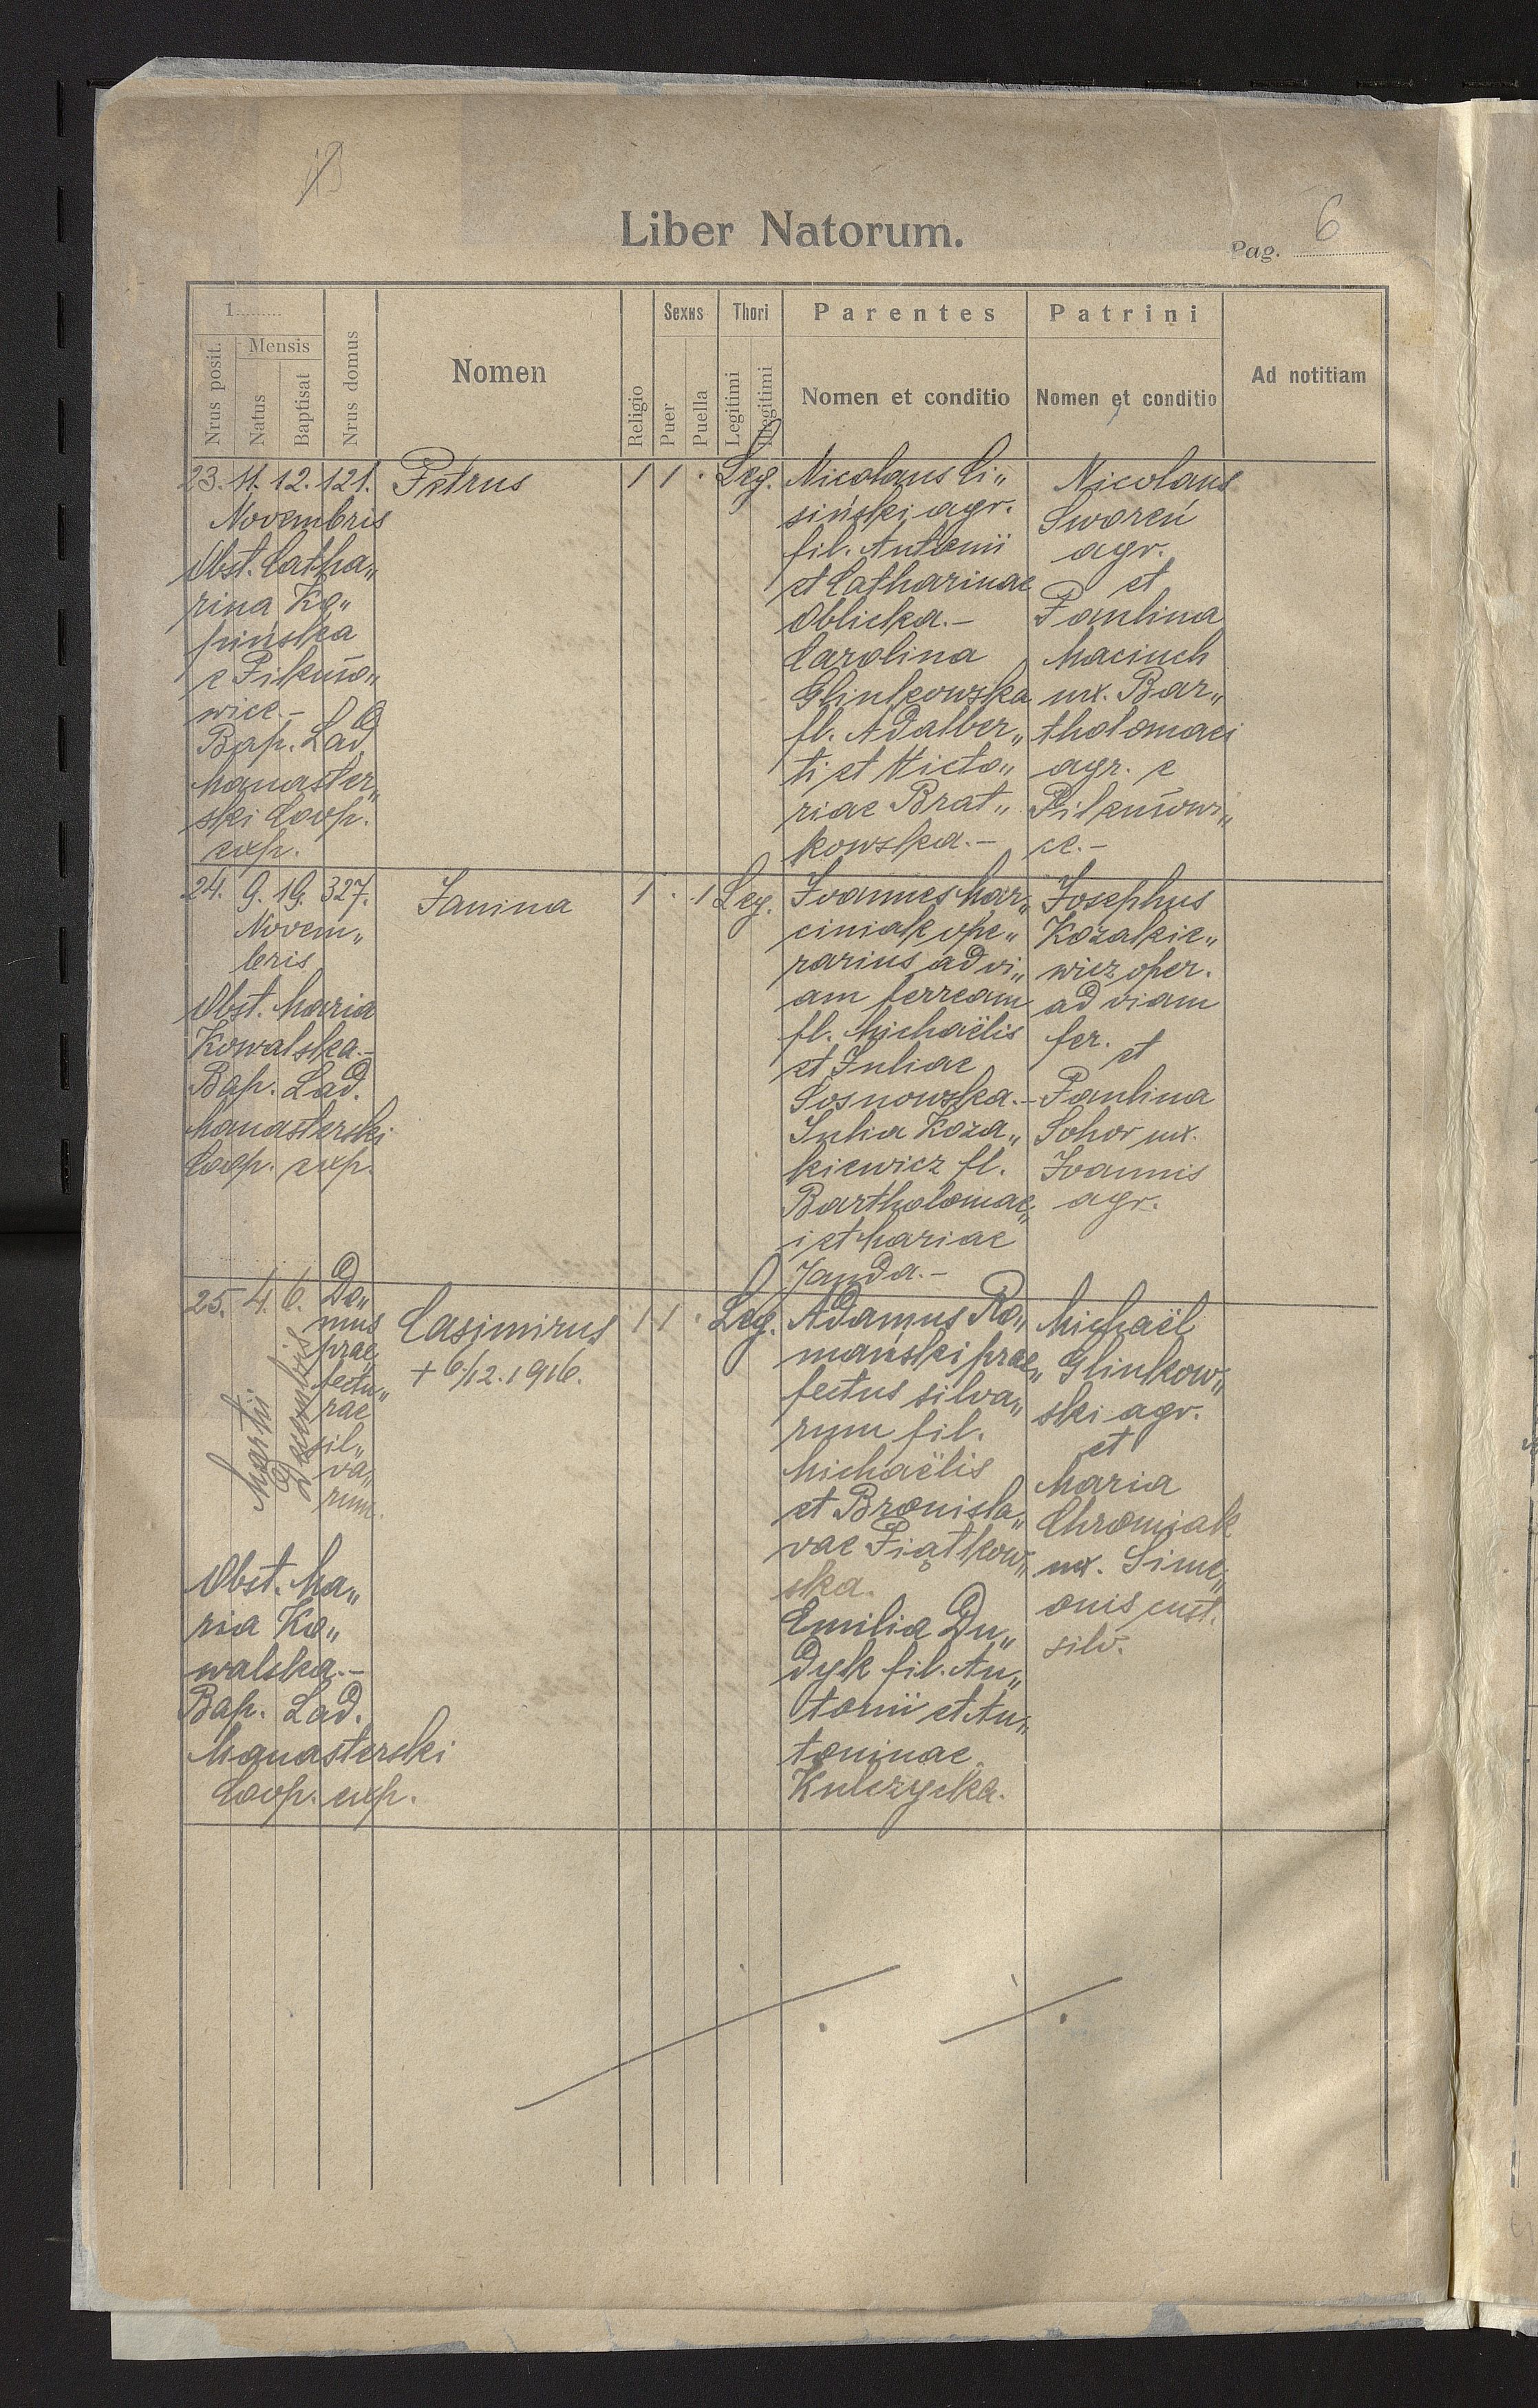 13
Liber Natorum.
Pag. 6
1.........
Nrus posit.
Mensis
Natus
Baptisat
Nrus domus
Nomen
Religio
Sexus
Puer
Puella
Thori
Legitimi
Illegitimi
Parentes
Nomen et conditio
Patrini
Nomen et conditio
Ad notitiam
23. 11. 12. 121.
Novembris
Obst. Catha„
rina Ko„
pińska
e Pikuło„
wice.-
Bap. Lad.
Manaster„
ski Coop.
exp.
Petrus
1 1 . Leg.
Nicolaus Li„
siński agr.
fil. Antonii
et Catharinae
Oblicka.-
Carolina
Glinkowska
fl. Adalber„
ti et Victo„
riae Brat„
kowska.-
Nicolaus
Sworeń
agr.
et
Paulina
Maciuch
ux. Bar„
tholomaei
agr. e
Pikułowi„
ce.-
24. 9. 19. 327.
Novem„
bris
Obst. Maria
Kowalska.-
Bap. Lad.
Manasterski
Coop. exp.
Janina
1 . 1 Leg.
Joannes Mar„
ciniak ope„
rarius ad vi„
am ferream
fl. Michaëlis
et Juliae
Sosnowska.-
Julia Koza„
kiewicz fl.
Bartholomae„
i et Mariae
Janda.-
Josephus
Kozakie„
wicz oper.
ad viam
fer.
et
Paulina
Sohor ux.
Joannis
agr.
25. 4. 6. Do„
mus
prae„
fectu„
rae
sil„
va„
rum.
Martii
Decembris
Obst. Ma„
ria Ko„
walska.-
Bap. Lad.
Manasterski
Coop. exp.
Casimirus
+ 6/12.1916.
1 1 . Leg.
Adamus Ro„
mański prae„
fectus silva„
rum fil.
Michaëlis
et Bronisla„
vae Piątkow„
ska.
Emilia Du„
dyk fil. An„
tonii et An„
toninae
Kulczycka.
Michaël
Glinkow„
ski agr.
et
Maria
Chromiak
ux. Sime„
onis cust.
silv.